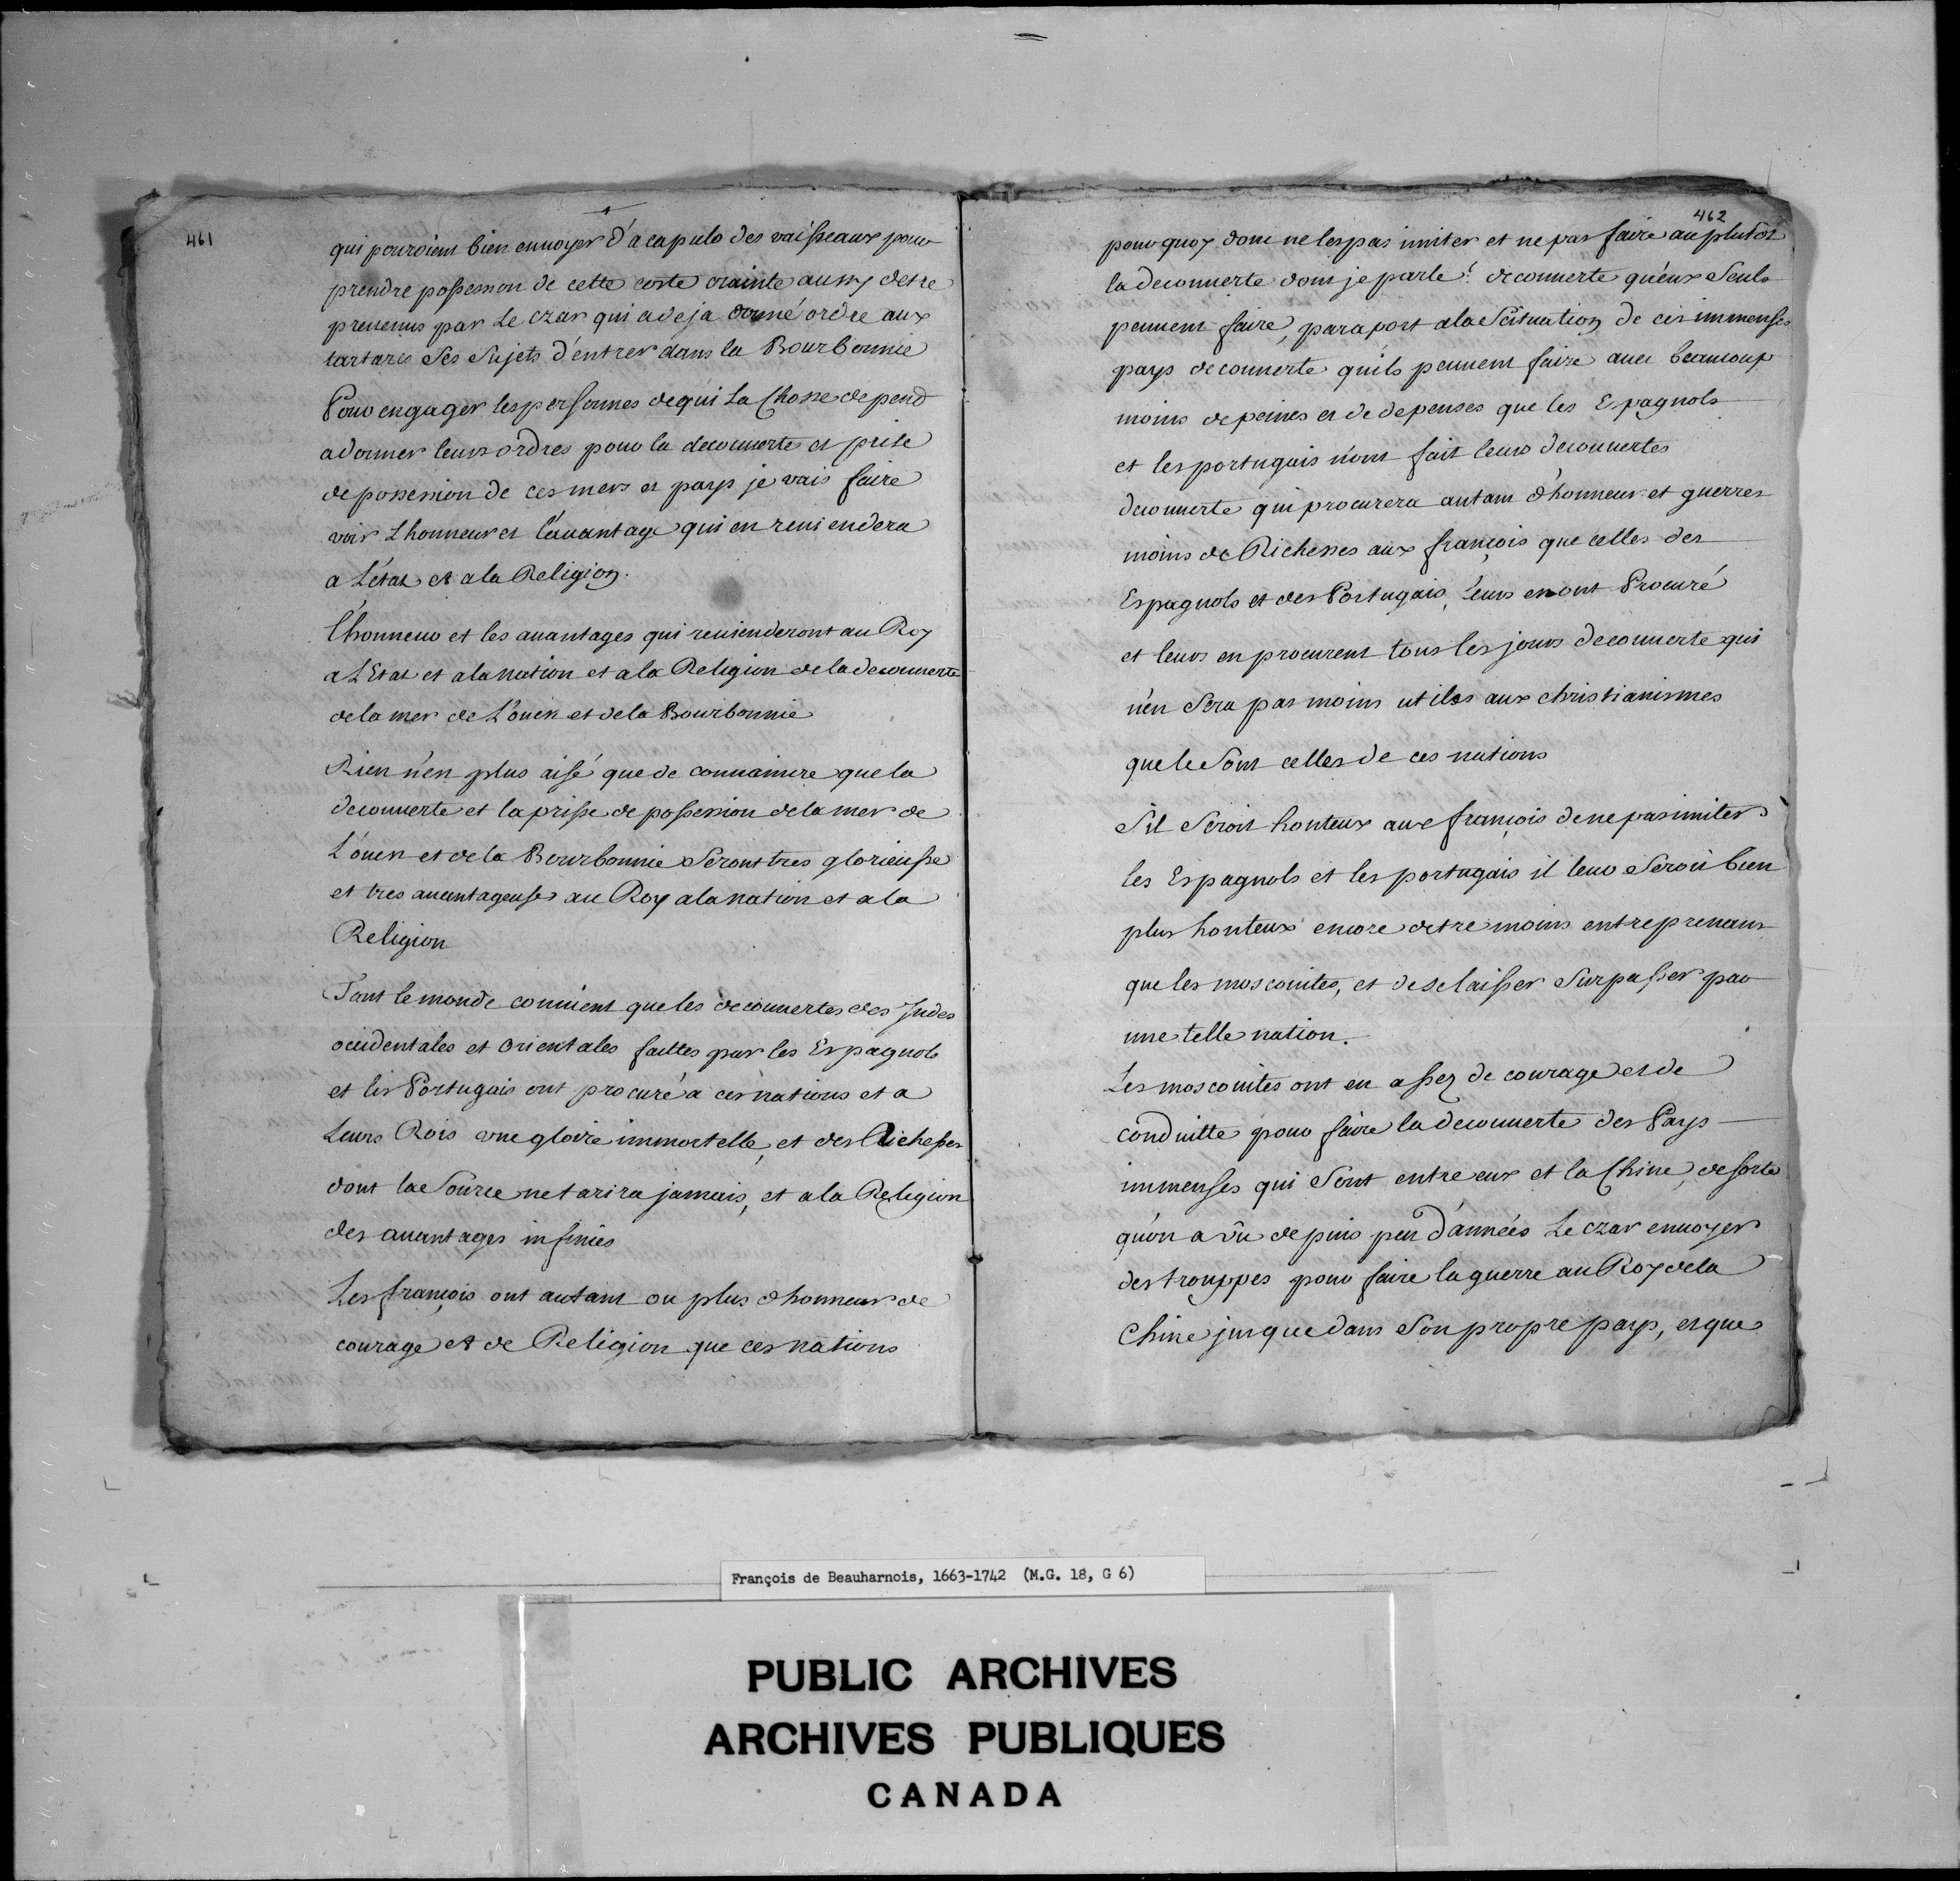 461
qui pouroient bien enuoyer d'acapulo des vaisseaux pour
prendre possession de cette coste crainte aussy destre
preuenus par Le czar qui a deja donné ordre aux
tartares ses sujets d'entrer dans la Bourbonnie
Pour engager les personnes de qui La Chosse depend
a donner leurs ordres pour la decouuerte et prise
de possession de ces mers et pays je vais faire
voir L'honneur et l'auantage qui en reuiendera
a L'état et a la Religion.
l'honneur et les auantages qui reuienderont au Roy
a L'Etat et a la nation et a la Religion de la decouuerte
de la mer de L'ouest et de la Bourbonnie
Rien n'est plus aisé que de connaincre que la
decouuerte et la prisse de possession de la mer de
L'ouest et de la Bourbonnie seront tres glorieusse
et tres auantageuses au Roy a la nation et a la
Religion
Tout le monde conuient que les decouuertes des Indes
occidentales et orientales faittes par les Espagnols
et les Portugais ont procuré a ces nations et a
Leurs Rois une gloire immortelle, et des Richesses
dont la source ne tarira jamais, et a la Religion
des auantages infinies
Les françois ont autant ou plus d'honneur de
courage et de Religion que ces nations
462
pourquoy donc ne les pas imiter et ne pas faire au plutôt
la decouuerte dont je parle? decouuerte qu'eux seuls
peuuent faire, par aport a la scituation de ces immenses
pays decouuerte qu'ils peuuent faire auec beaucoup
moins de peines et de depenses que les Espagnols
et les portugais n'ont fait leurs decouuertes
decouuerte qui procurera autant d'honneur et guerres
moins de Richesses aux françois que celles des
Espagnols et des Portugais, Leurs en ont Procuré
et leurs en procurent tous les jours decouuerte qui
n'en sera pas moins utiles aux christianismes
que le sont celles de ces nations
S'il seroit honteux aux françois de ne pas imiter
les Espagnols et les portugais il leur seroit bien
plus honteux encore detre moins entreprenans
que les moscouites, et de se laisser surpasser par
une telle nation.
Les moscouites ont eu assez de courage et de
conduitte pour faire la decouuerte des Pays
immenses qui sont entre eux et la Chine, de sorte
qu'on a vû depuis peu d'années Le czar enuoyer
des trouppes pour faire la guerre au Roy de la
Chine jusque dans son propre pays, et que
François de Beauharnois, 1663-1742 (M.G. 18, G 6)
PUBLIC ARCHIVES
ARCHIVES PUBLIQUES
CANADA